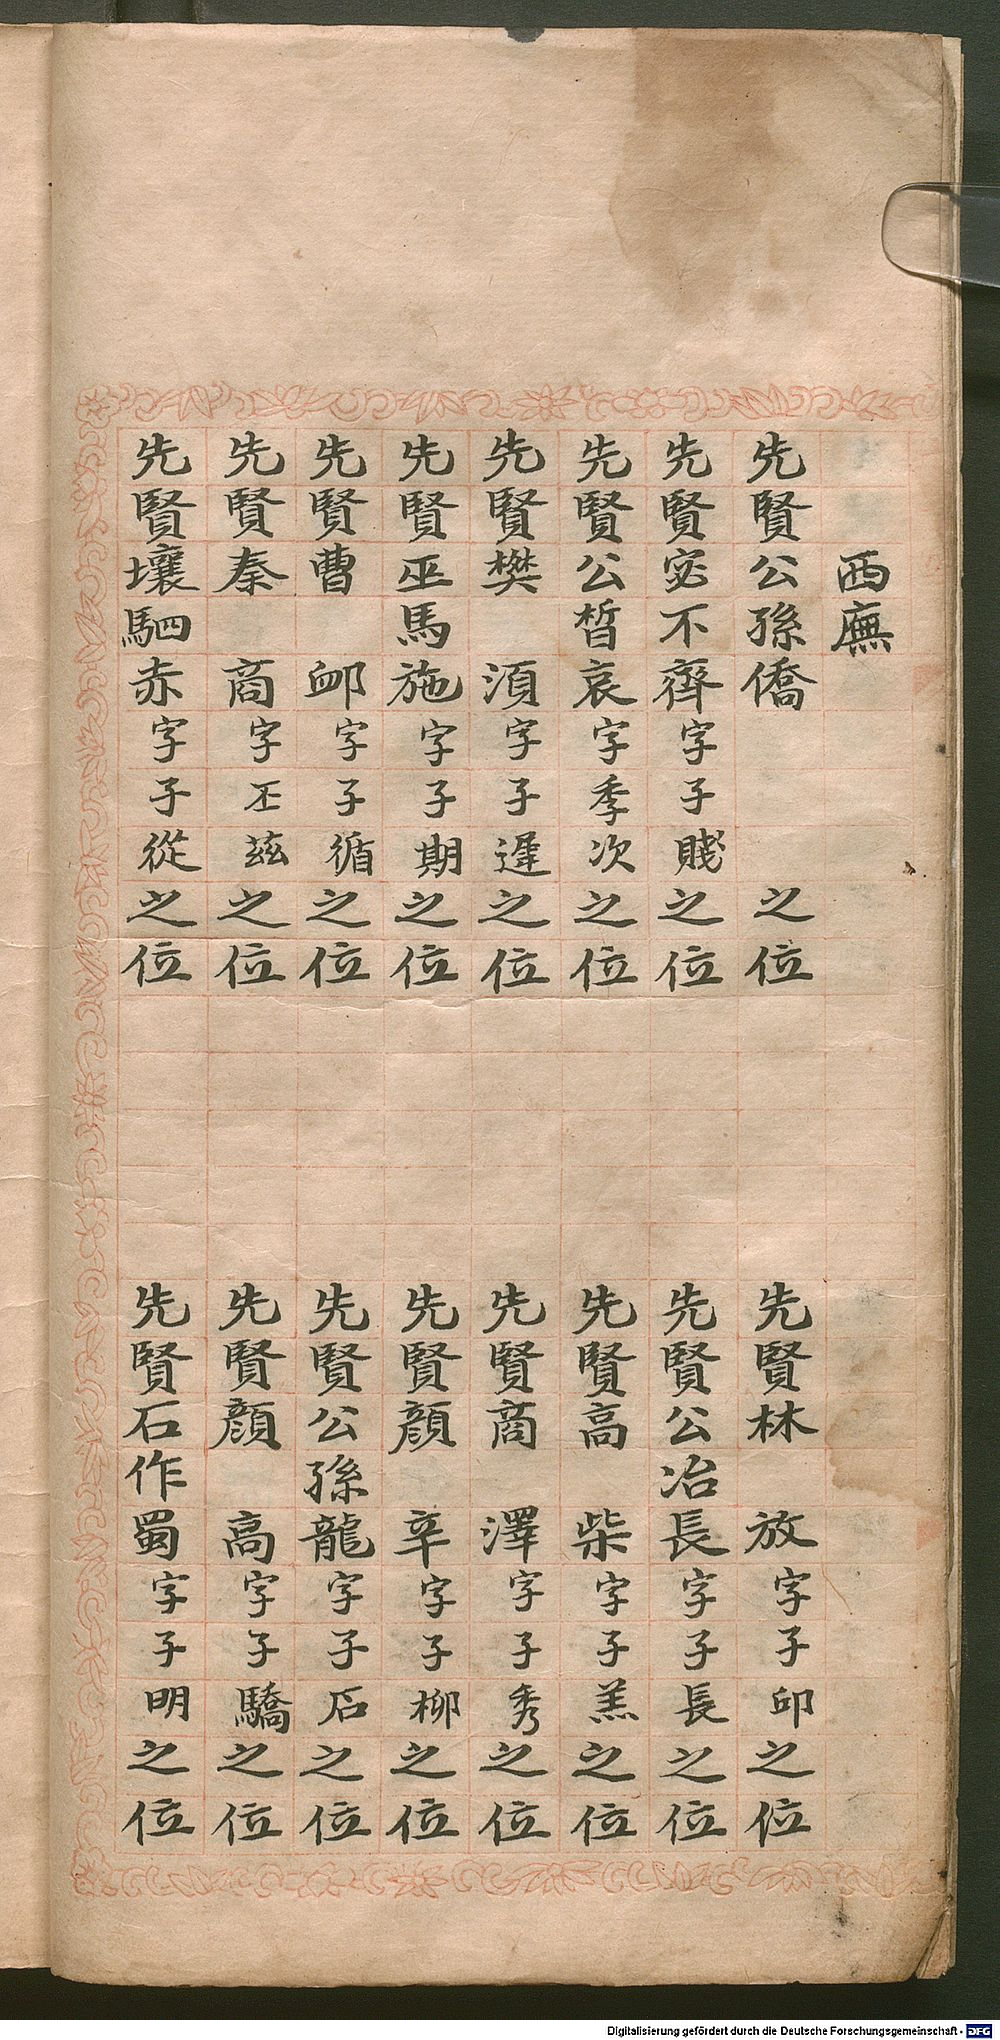 西廡
先賢公孫僑之位 先賢林放字子邱之位
先賢宓不齊字子賤之位 先賢公冶長字子長之位
先賢公晳哀字季次之位 先賢高柴字子羔之位
先賢樊湏字子遲之位 先賢商澤字子秀之位
先賢巫馬施字子期之位 先賢顔辛字子柳之位
先賢曹卹字子循之位 先賢公孫龍字子石之位
先賢秦商字丕茲之位 先賢顔高字子驕之位
先賢壤駟赤字子從之位 先賢石作蜀字子明之位
Digitalisierung gefördert durch die Deutsche Forschungsgemeinschaft - DFG